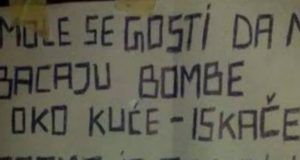 MOLE SE GOSTI DA N
BACAJU BOMBE
OKO KUĆE - ISKAČE